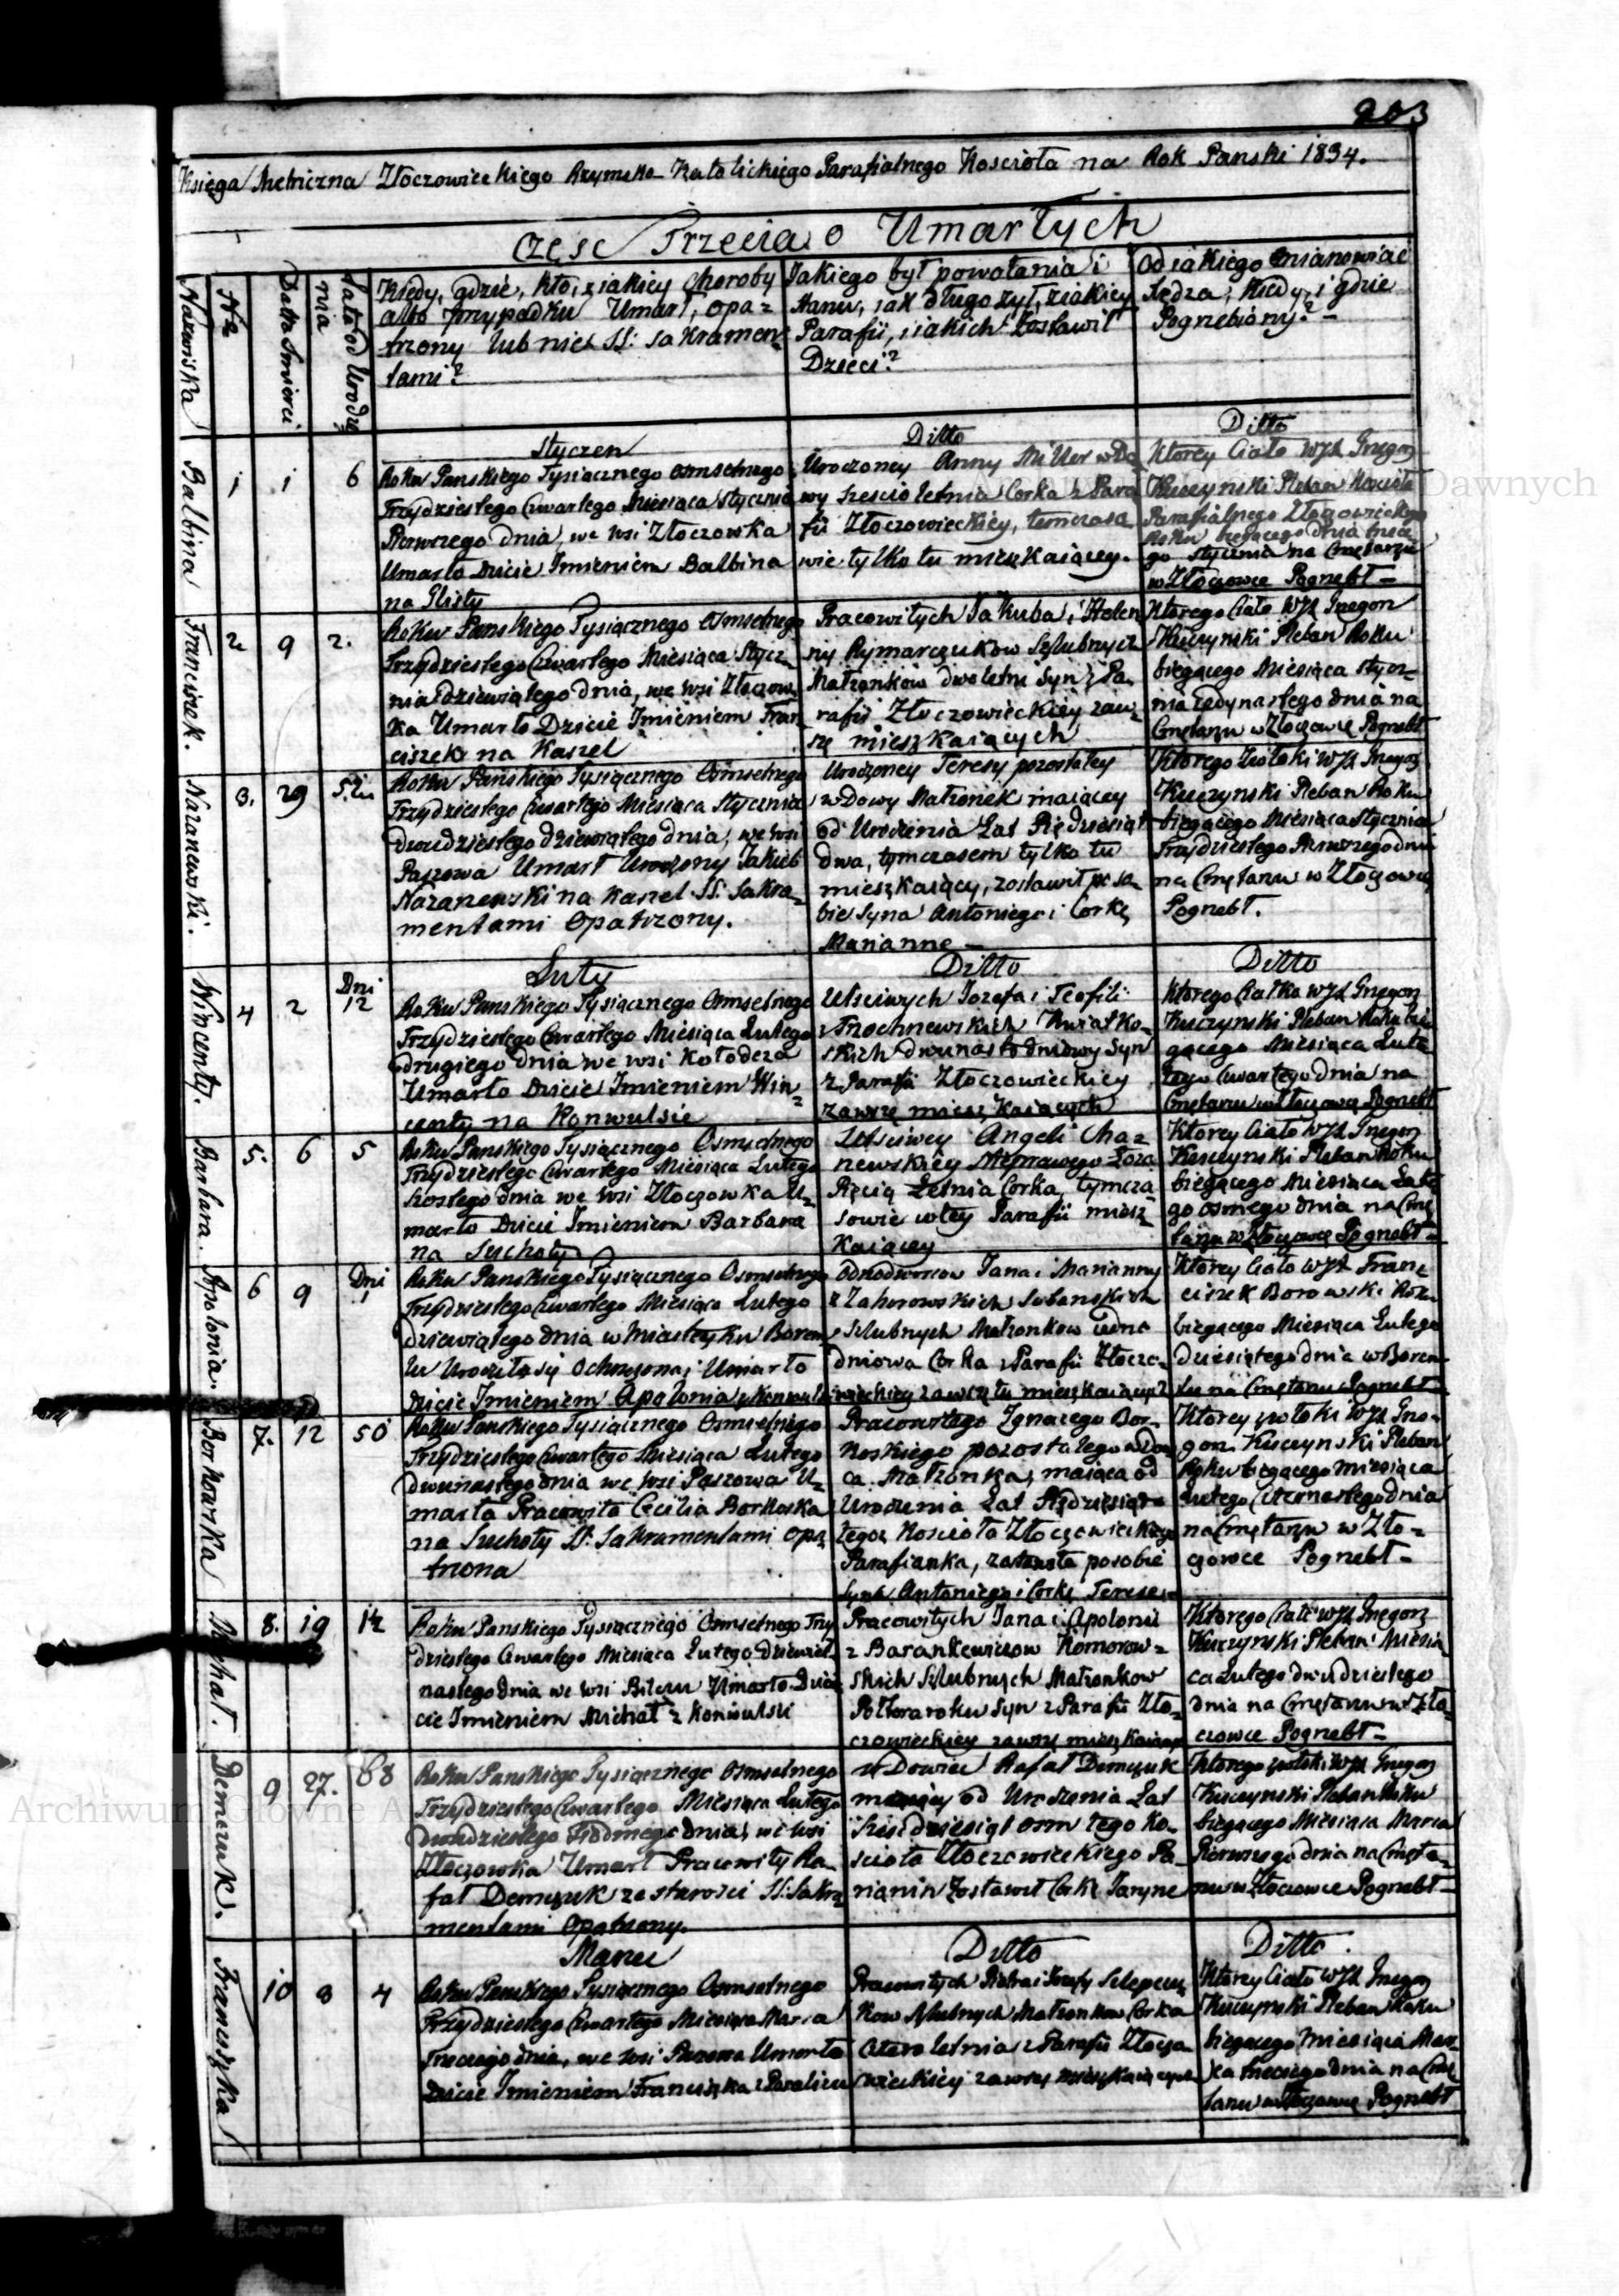 203
Księga Metriczna Złoczowieckiego Rzymsko Katolickiego Parafialnego Kościoła na Rok Panski 1834.
Częsc Trzecia o Umarłych
Nazwiska
Nr
Datta Smierci
Lata od Urodze
nia
Kiedy, gdzie, kto, z iakiey Choroby
albo przypadku Umarł, opa=
trzony lub nie SS: Sakramen=
tami?
Jakiego był powołania i
stanu, iak długo żył, z iakiey
Parafii, i iakich zostawił
Dzieci?
Od iakiego mianowicie
Kiedy, i gdzie
Pogrzebiony? =
Styczen
Ditto
Ditto
Balbina
1 1 6
Roku Panskiego Tysiącznego osmsetnego
Trzydziestego Czwartego Miesiąca Stycznia
Pierwszego dnia, we wsi Złoczowka
Umarło Dzicie Imieniem Balbina
na Glisty
Urodzoney Anny Miller wDo
wy szescio letnia Corka z Para
fii Złoczowieckiey, temczaso
wie tylko tu mieszkaiącey.
Ktorey Ciało WJX Grzegorz
Kuczynski Pleban Koscioła
Parafialnego Złoczowieckiego
Roku biegącego dnia trzecie
go stycznia na Cmętarzu
w Złoczowce Pogrzebł =
Franciszek.
2 9 2.
Roku Panskiego Tysiącznego Osmsetnego
Trzydziestego Czwartego Miesiąca Stycz=
nia dziewiątego dnia, we wsi Złoczow=
ka Umarło Dzicie Imieniem Fran
ciszek na Kaszel
Pracowitych Jakuba i Helen
ny Rymarczukow Szlubnych
Małżonkow dwoletni Syn z Pa=
rafii Złoczowieckiey zaw=
sze mieszkaiących
Ktorego Ciało WJX Grzegorz
Kuczynski Pleban Roku
biegącego Miesiąca stycz=
nia Jedynastego dnia na
Cmętarzu w Złoczowce Pogrzebł
Nazanewski.
3. 29 52
Roku Panskiego Tysiącznego Osmsetnego
Trzydziestego Czwartego Miesiąca Stycznia
dwudziestego dziewiątego dnia, we wsi
Paszowa Umarł Urodzony Jakub
Nazanewski na Kaszel SS. Sakra=
mentami Opatrzony.
Urodzoney Teresy pozostałey
wdowy Małżonek maiący
od Urodzenia Lat Pięćdziesiąt
dwa, tymczasem tylko tu
mieszkaiący, zostawił po so=
bie Syna Antoniego i Corkę
Mariannę =
Ktorego Zwłoki WJX Grzegorz
Kuczynski Pleban Roku
biegącego Miesiąca Stycznia
Trzydziestego Pierwszego dnia
na Cmętarzu w Złoczowce
Pogrzebł.
Luty
Ditto
Ditto
Wincenty.
4 2 Dni 12
Roku Panskiego Tysiącznego Osmsetnego
Trzydziestego Czwartego Miesiąca Lutego
drugiego dnia we wsi Kołodeza
Umarło Dzicie Imieniem Win=
centy na Konwulsie
Utsciwych Jozefa i Teofili
Kwiatko=
skich dwunasto dniowy Syn
z Parafii Złoczowieckiey
zawsze mieszkaiących
Ktorego Ciałko WJX Grzegorz
Kuczynski Pleban Roku bie
gącego Miesiąca Lute
go Czwartego dnia na
Cmętarzu w Złoczowce Pogrzebł
Barbara.
5. 6 5
Roku Panskiego Tysiącznego Osmsetnego
Trzydziestego Czwartego Miesiąca Lutego
szostego dnia we wsi Złoczowka U=
marło Dzicie Imieniem Barbara
na Suchoty
Utsciwey Angeli Cha=
newskiey Nieprawego Łoża
Pięcią Letnia Corka, tymcza=
sowie w tey Parafii miesz=
kaiącey
Ktorey Ciało WJX Grzegorz
Kuczynski Pleban Roku
biegącego Miesiąca Lute
go osmego dnia na Cmę
tarzu w Złoczowce Pogrzebł =
Apolonia.
6 9 Dni 1
Roku Panskiego Tysiącznego Osmsetnego
Trzydziestego Czwartego Miesiąca Lutego
dziewiątego dnia w Miasteczku Borem=
lu Urodziła się Ochrzczona i Umarło
Dzicie Imieniem Apolonia z Konwulsii
Odnodworcow Jana i Marianny
z Zahorowskich Sobanskich
Szlubnych Małżonkow iedno
dniowa Corka z Parafii Złoczo=
wieckiey zawsze tu mieszkaiących
Ktorey Ciało WJX Fran=
ciszek Borowski Roku
biegącego Miesiąca Lutego
dziesiątego dnia w Borem=
lu na Cmętarzu Pogrzebł =
Borkowska
7. 12 50
Roku Panskiego Tysiącznego Osmsetnego
Trzydziestego Czwartego Miesiąca Lutego
dwunastego dnia we wsi Paszowa U=
marła Pracowita Cecilia Borkoska
na Suchoty SS. Sakramentami opa=
trzona
Pracowitego Ignacego Bor=
koskiego pozostałego wdow
ca Małżonka, maiąca od
Urodzenia Lat Pięćdziesiąt
tegoż Koscioła Złoczowieckiego
Parafianka, zostawiła po sobie
Syna Antoniego i Corkę Teresę =
Ktorey zwłoki WJX Grze=
gorz Kuczynski Pleban
Roku biegącego Miesiąca
Lutego Czternastego dnia
na Cmętarzu w Zło=
czowce Pogrzebł =
Michał.
8. 19 1½
Roku Panskiego Tysiącznego Osmsetnego Trzy
dziestego Czwartego Miesiąca Lutego dziewięt
nastego dnia we wsi Umarło Dzie
cie Imieniem Michał z Konwulsii
Pracowitych Jana i Apolonii
z Barankewiczow Komorow=
skich Szlubnych Małżonkow
Połtoraroku Syn z Parafii Zło=
czowieckiey zawsze mieszkaiących
Ktorego Ciało WJX Grzegorz
Kuczynski Pleban Miesią
ca Lutego dwudziestego
dnia na Cmętarzu w Zło=
czowce Pogrzebł =
Demczuk.
9 27. 68
Roku Panskiego Tysiącznego Osmsetnego
Trzydziestego Czwartego Miesiąca Lutego
dwudziestego siodmego dnia, we wsi
Złoczowka Umarł Pracowity Ra=
fał Demczuk ze starosci SS: Sakra=
mentami Opatrzony.
wDowiec Rafał Demczuk
maiący od Urodzenia Lat
sześćdziesiąt osm tego Ko=
scioła Złoczowieckiego Pa=
rianin Zostawił Corkę
Ktorego zwłoki WJX Grzegorz
Kuczynski Pleban Roku
biegącego Miesiąca Marca
Pierwszego dnia na Cmęta=
rzu w Złoczowce Pogrzebł =
Marzec
Ditto
Ditto.
Franciszka
10 3 4
Roku Panskiego Tysiącznego Osmsetnego
Trzydziestego Czwartego Miesiąca Marca
Trzeciego dnia, we wsi Paszowa Umarło
Dzicie Imieniem Franciszka z Paraliżu
Pracowitych Piotra i Jozefy
kow Szlubnych Małżonkow Corka
Cztero letnia z Parafii Złoczo
wieckiey zawsze mieszkaiących
Ktorey Ciało WJX Grzegorz
Kuczynski Pleban Roku
biegącego Miesiąca Mar=
ca trzeciego dnia na Cmę
tarzu w Złoczowce Pogrzebł
Archiwum Główne A
Dawnych